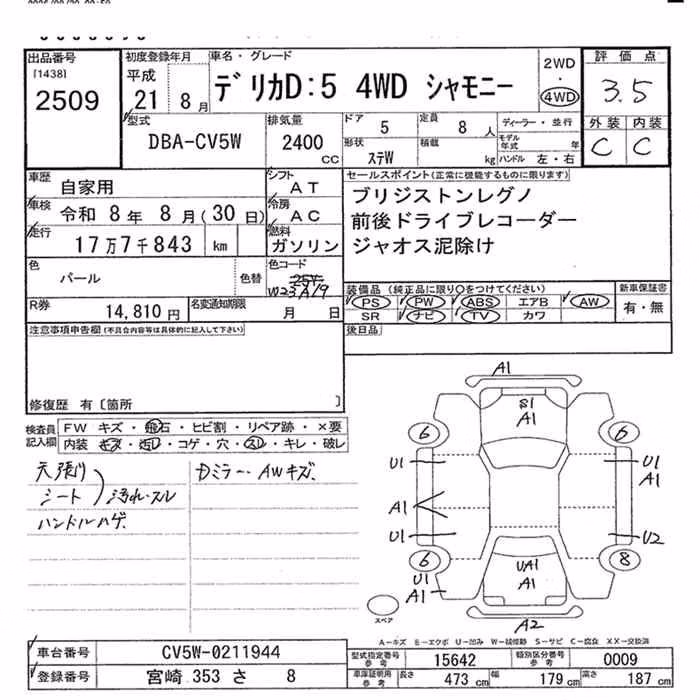 出品番号
[1438]
2509
初度登録年月
平成
21 8月
車名・グレード
デリカD:5 4WD シャモニー
2WD
・
4WD
評価点
3.5
外装 内装
C C
型式
DBA-CV5W
排気量
2400
CC
ドア 5
定員 8 人
形状 ステW
積載 kg
ディーラー・並行
モデル年式 年
ハンドル 左・右
車歴 自家用
車検 令和 8年 8月(30日)
走行 17万7千843 km
シフト AT
冷房 AC
燃料 ガソリン
セールスポイント(正常に機能するものに限ります)
ブリジストンレグノ
前後ドライブレコーダー
ジャオス泥除け
色 パール 色替
色コード
W23 A19
R券 14,810円
名変通知期限 月 日
装備品 (純正品に限り○をつけてください)
PS PW ABS エアB AW
SR ナビ TV カワ
新車保証書
有・無
後日品
注意事項申告欄(不具合内容等は具体的に記入して下さい)
修復歴 有〔箇所 〕
検査員記入欄
FW キズ・飛石・ヒビ割・リペア跡・×要
内装 キズ・汚レ・コゲ・穴・スレ・キレ・破レ
天張り
シート 汚れ・スレ
ハンドルハゲ
Dミラー・AWキズ.
A1
S1
A1
6 6
U1 U1
A1
A1
U1 U2
6 8
U1
A1
UA1
A1
スペア
A2
A-キズ E-エクボ U-凹み W-補修跡 S-サビ C-腐食 XX-交換済
車台番号 CV5W-0211944
登録番号 宮崎 353 さ 8
型式指定番号 参考 15642
類別区分番号 参考 0009
車庫証明用 参考 長さ 473cm 幅 179cm 高さ 187cm